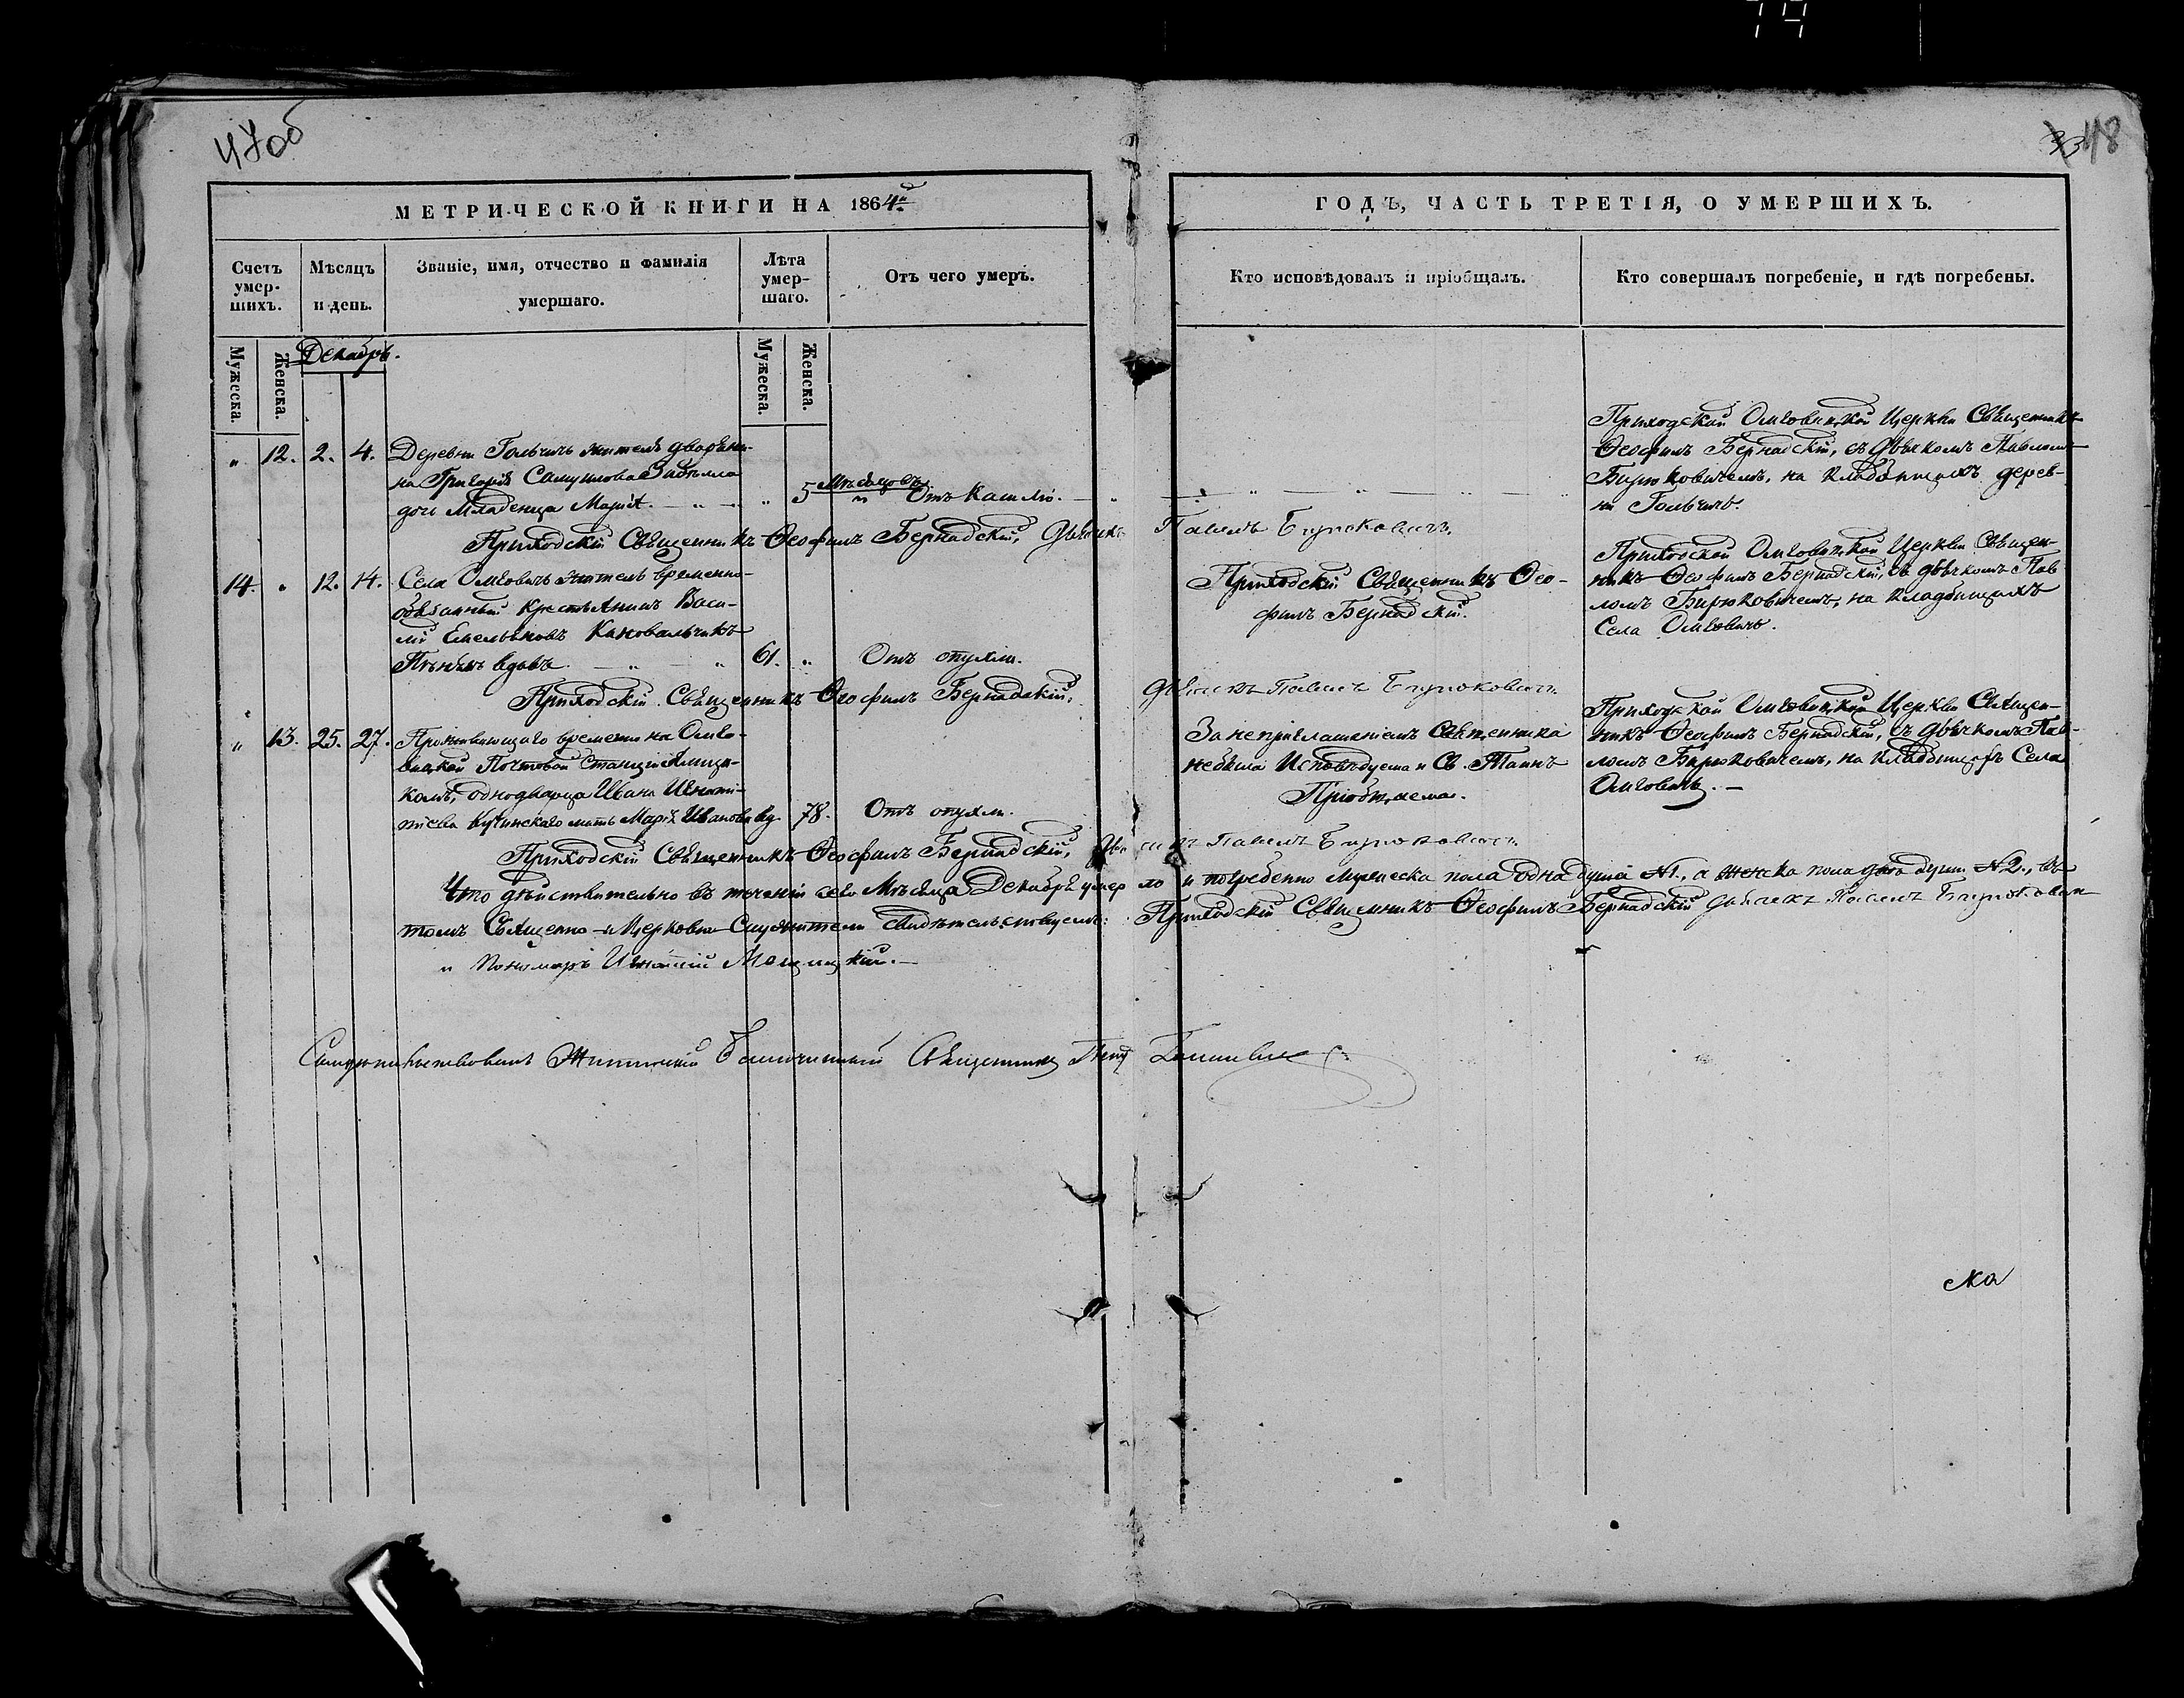 47об
48
МЕТРИЧЕСКОЙ КНИГИ НА 1864й
ГОДЪ, ЧАСТЬ ТРЕТІЯ, О УМЕРШИХЪ.
Счетъ умер-шихъ.
Мѣсяцъ и день.
Званіе, имя, отчество и фамилія умершаго.
Лѣта умер-шаго.
Отъ чего умеръ.
Кто исповѣдовалъ и пріобщалъ.
Кто совершалъ погребеніе, и гдѣ погребены.
Мужеска.
Женска.
Декабрь.
Мужеска.
Женска.
" 12. 2. 4. Деревни Гольчичъ жителя дворяни-
на Григорія Самуилова
дочь Младенца Марія. " 5 Мѣсяцовъ Отъ Кашлю.
Приходской Церкви Священникъ
Ѳеофилъ Бернадскій, съ дьячкомъ Павломъ
Бирюковичемъ, на кладбищахъ дерев-
ни Гольчичъ.
Приходскій Священникъ Ѳеофилъ Бернадскій, Дьячикъ Павелъ Бирюковичъ.
14. " 12. 14. Села Омговичъ житель временно-
обязанный крестьянинъ Васи-
лій Емельяновъ Кановальчикъ
вдовъ. 61. " Отъ опухли.
Приходскій Священникъ Ѳео-
филъ Бернадскій.
Приходской Омговицкой Церкви Священ-
никъ Ѳеофилъ Бернадскій, съ дьячкомъ Пав
ломъ Бирюковичемъ, на кладбищахъ
Села Омговичъ.
Приходскій Священникъ Ѳеофилъ Бернадскій, Дьячикъ Павелъ Бирюковичъ.
" 13. 25. 27. Проживающаго временно на Омго-
вицкой Почтовой Станціи Ямщи-
комъ, однодворца Ивана Игнаті-
ева Кучинскаго мать Марія Иванова 78. Отъ опухли.
За неприглашеніемъ Священника
небыла Исповѣдуема и Св. Таинъ
Пріобщаема.
Приходской Омговицкой Церкви Священ-
никъ Ѳеофилъ Бернадскій, съ дьячкомъ Пав-
ломъ Бирюковичемъ, на кладбищахъ Села
Омговичъ.
Приходскій Священникъ Ѳеофилъ Бернадскій, Дьячикъ Павелъ Бирюковичъ.
Что дѣйствительно въ теченіи сего Мѣсяца Декабря умерло и погребенно мужеска пола одна душа №1., а женска пола двѣ души №2., въ
томъ Священно-и Церковно-Служители свидѣтельствуемъ: Приходскій Священникъ Ѳеофилъ Бернадскій Дьячикъ Павелъ Бирюкович
и Пономарь Игнатій
Благочинный Священникъ
ка